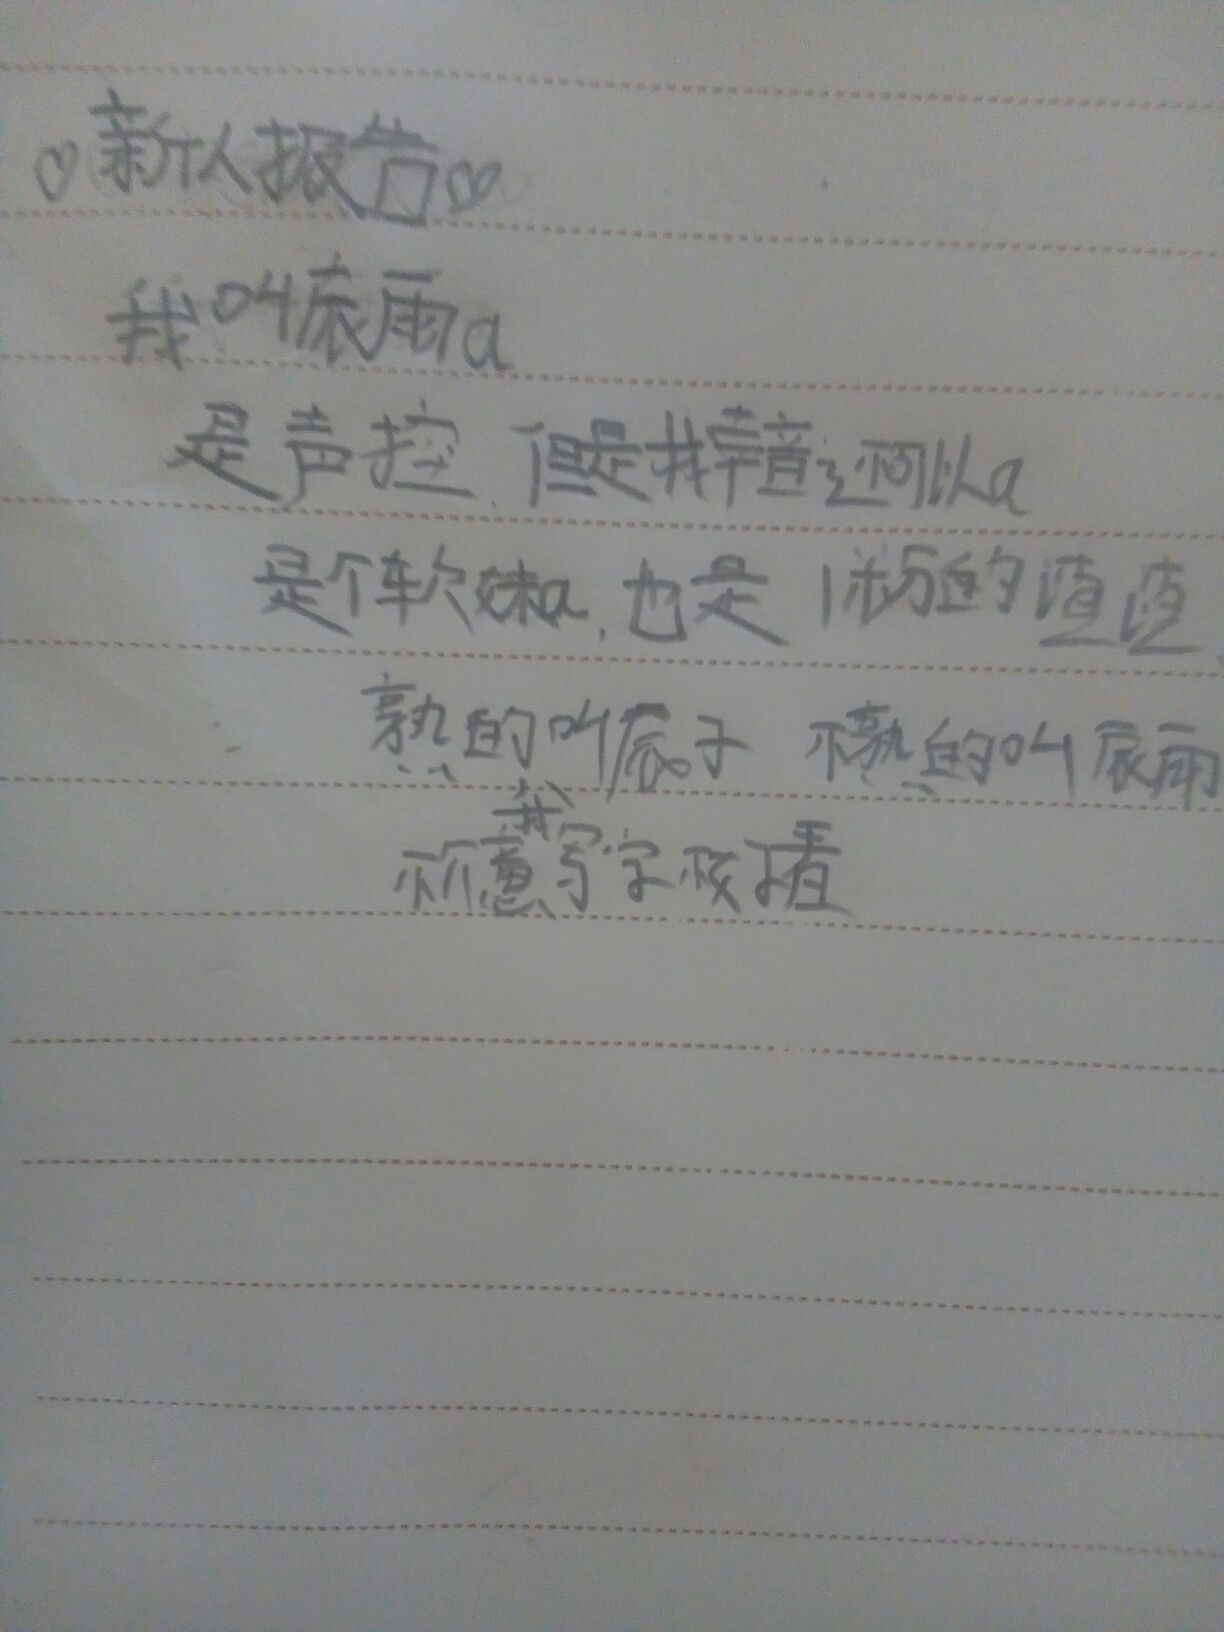 ♡新人报告♡
我叫辰雨a
是声控,但是我声音还可以a
是个软妹a,也是 的渣渣,
熟的叫辰子 不熟的叫辰雨
我
介意写字 好看